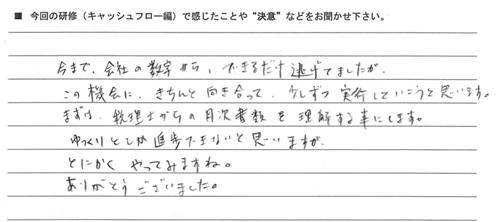 ■ 今回の研修（キャッシュフロー編）で感じたことや“決意”などをお聞かせ下さい。
今まで、会社の数字から、できるだけ逃げてましたが、
この機会に、きちんと向き合って、少しずつ実行していこうと思います。
まずは、税理士からの月次書類を理解する事にします。
ゆっくりとしか進歩できないと思いますが、
とにかくやってみますね。
ありがとうございました。